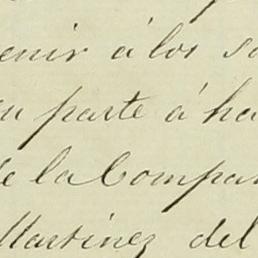 enir á los
parte á ha
de la Compa
Martinez del